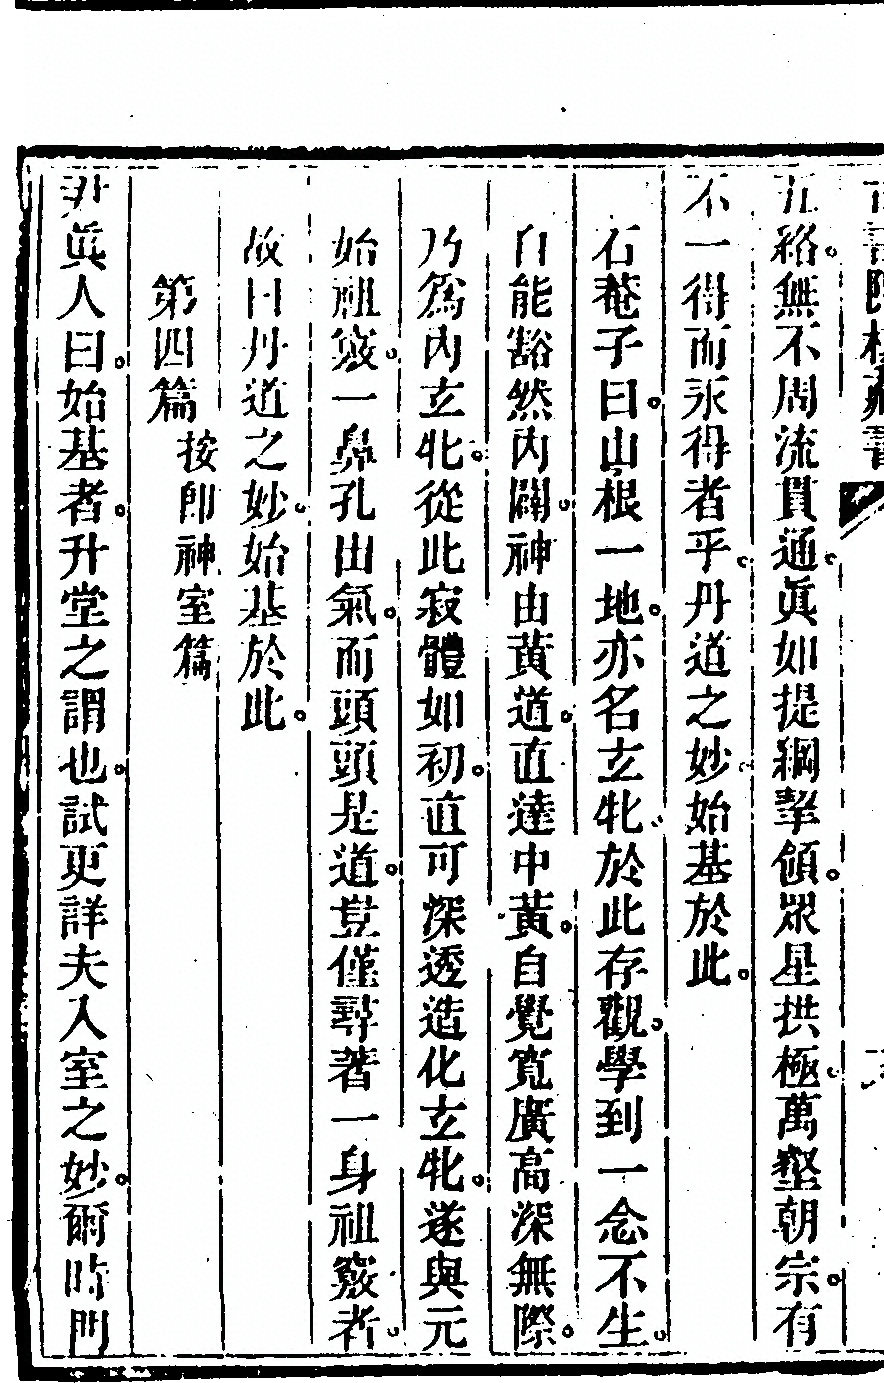 五絡。無不周流貫通。眞如提綱挈領。眾星拱極。萬壑朝宗。有
不一得而永得者乎。丹道之妙。始基於此。
石菴子曰。山根一地。亦名玄牝。於此存觀。學到一念不生。
自能豁然內闢。神由黃道。直達中黃。自覺寬廣高深無際。
乃爲內玄牝。從此寂體如初。直可深透造化玄牝。遂與元
始祖竅。一鼻孔出氣。而頭頭是道。豈僅尋著一身祖竅者。
故曰丹道之妙。始基於此。
第四篇 按卽神室篇
尹眞人曰。始基者。升堂之謂也。試更詳夫入室之妙。爾時門